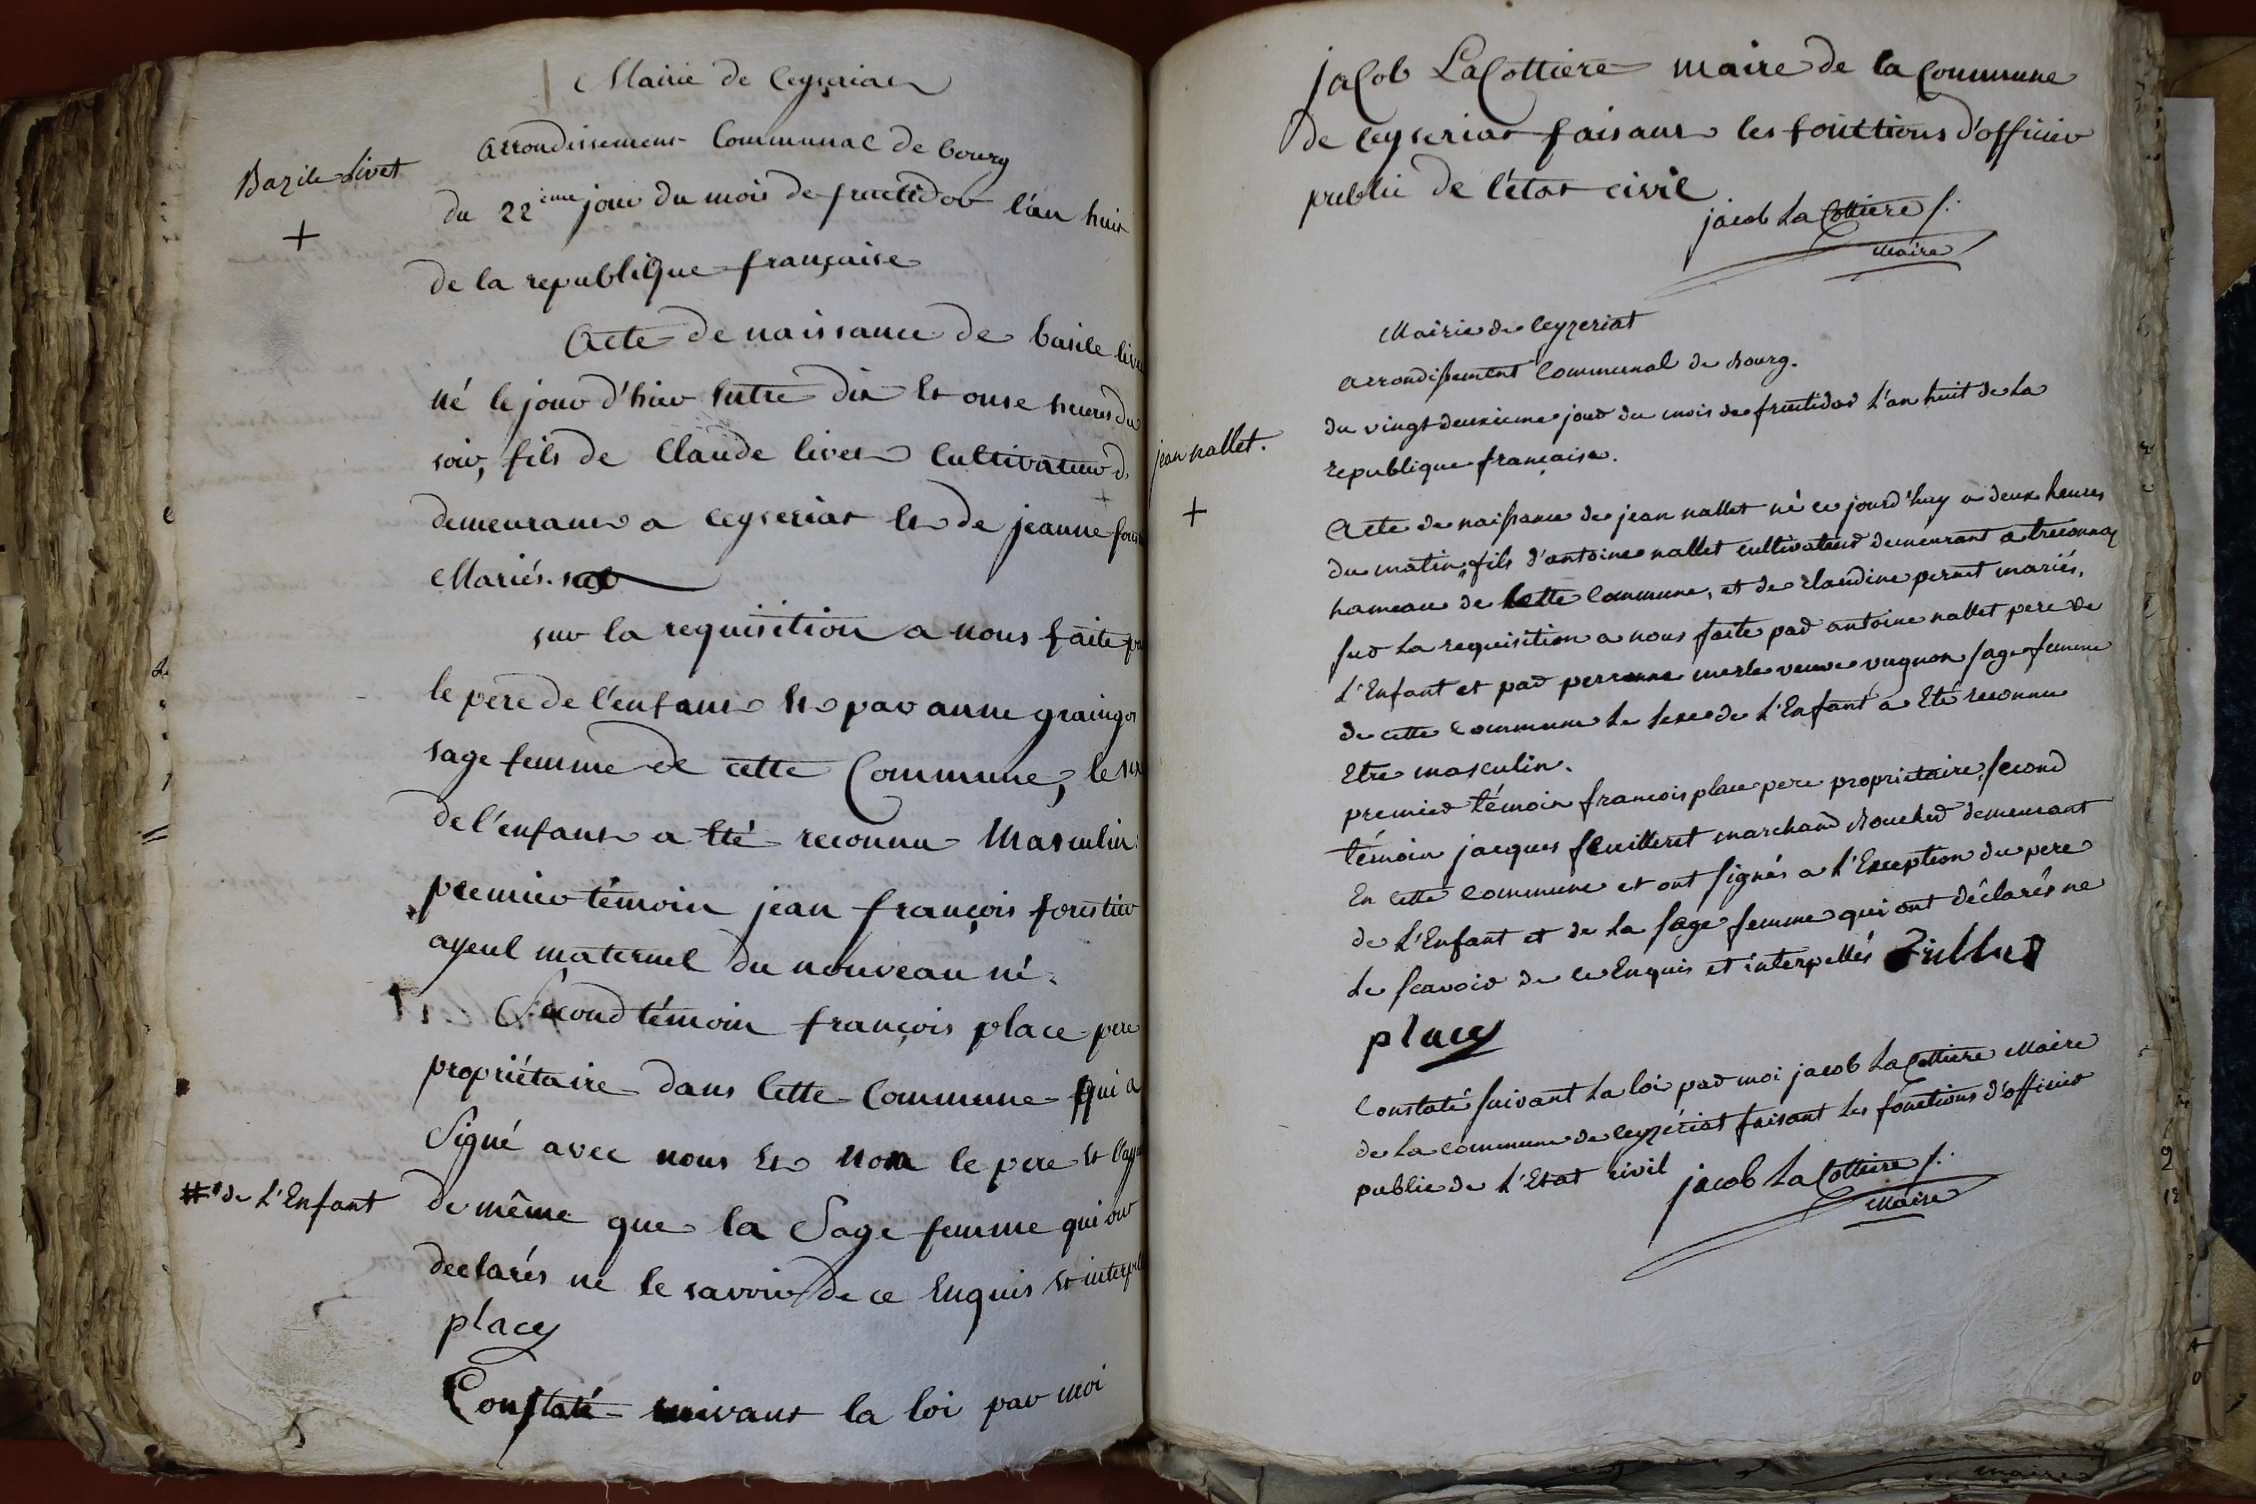 Mairie de Ceyseriat
Arrondissement Communal de bourg
Bazile Livet
+
du 22ème jour du mois de fructidor l'an huit
de la republique française
Acte de naissance de basile
né le jour d'hier entre dix et onse heures du
soir, fils de Claude livet Cultivateur
demeurant a ceyseriat et de jeanne
Mariés.
sur la requisition a nous faite
le pere de l'enfant et par anne
sage femme de cette Commune, le
de l'enfant a eté reconnu Masculin
premier témoin jean françois forestier
ayeul maternel du nouveau né.
Second témoin françois place pere
propriétaire dans cette Commune qui a
Signé avec nous et non le pere et
# de L'Enfant
de même que la Sage femme qui ont
declarés ne le savoir de ce Enquis et
placy
Constaté suivant la loi par moi
jacob LaCottiere maire de la Commune
de ceyseriat faisant les fonctions d'officier
public de l'état civil
jacob La Cottiere
maire
Mairie de Ceyzeriat
arrondissement Communal de Bourg.
du vingt deuxieme jour du mois de fructidor L'an huit de La
republique française.
jean nallet.
+
Acte de naissance de jean nallet né ce jourd'huy a deux heures
du matin, fils d'antoine nallet cultivateur demeurant a treconnaz
hameau de Cette Commune, et de claudine pernet mariés,
sur La requisition a nous faite par antoine nallet pere de
L'Enfant et par merle veuve vugnon sage femme
de cette commune Le sexe de L'Enfant a Eté reconnu
Etre masculin.
premier témoin francois place pere proprietaire, second
témoin jacques feuilleret marchand Boucher demeurant
En Cette Commune et ont signés a L'Exception du pere
de L'Enfant et de La sage femme qui ont déclarés ne
Le scavoir de ce Enquis et interpellés
placy
Constaté suivant La loi par moi jacob La Cottiere Maire
de La commune de Ceyzériat faisant Les fonctions d'officier
public de L'Etat civil
jacob La Cottiere
Maire